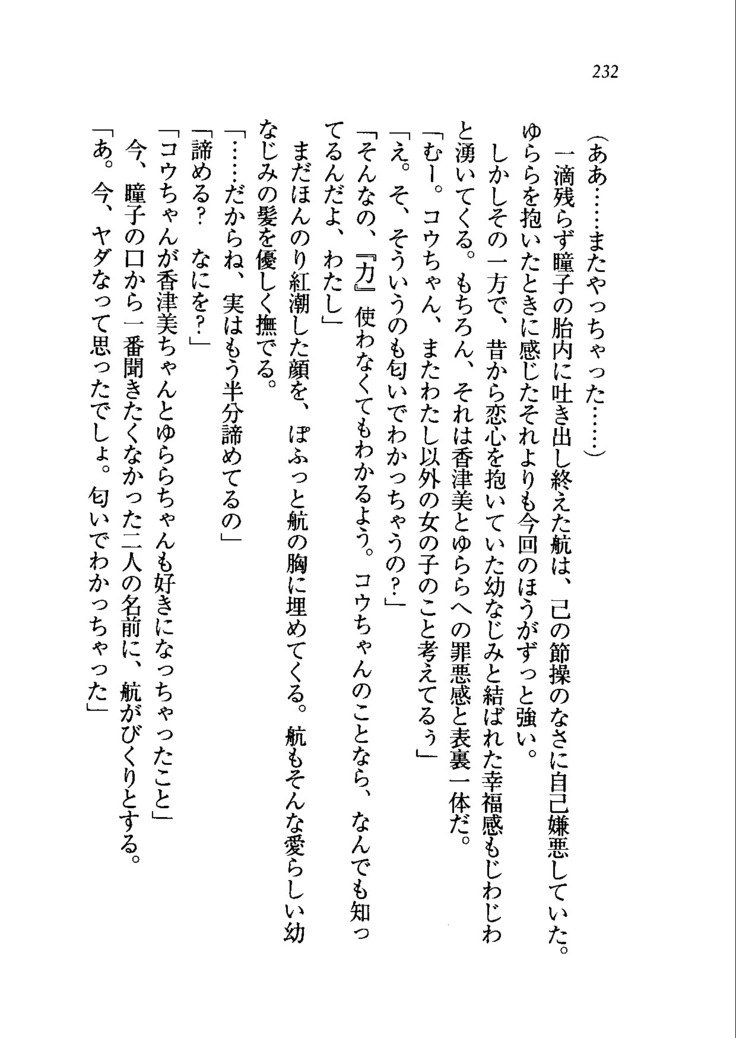 232
(ああ……またやっちゃった……)
　一滴残らず瞳子の胎内に吐き出し終えた航は、己の節操のなさに自己嫌悪していた。
ゆららを抱いたときに感じたそれよりも今回のほうがずっと強い。
　しかしその一方で、昔から恋心を抱いていた幼なじみと結ばれた幸福感もじわじわ
と湧いてくる。もちろん、それは香津美とゆららへの罪悪感と表裏一体だ。
「むー。コウちゃん、またわたし以外の女の子のこと考えてるぅ」
「え。そ、そういうのも匂いでわかっちゃうの？」
「そんなの、『力』使わなくてもわかるよう。コウちゃんのことなら、なんでも知っ
てるんだよ、わたし」
　まだほんのり紅潮した顔を、ぽふっと航の胸に埋めてくる。航もそんな愛らしい幼
なじみの髪を優しく撫でる。
「……だからね、実はもう半分諦めてるの」
「諦める？　なにを？」
「コウちゃんが香津美ちゃんとゆららちゃんも好きになっちゃったこと」
　今、瞳子の口から一番聞きたくなかった二人の名前に、航がびくりとする。
「あ。今、ヤダなって思ったでしょ。匂いでわかっちゃった」